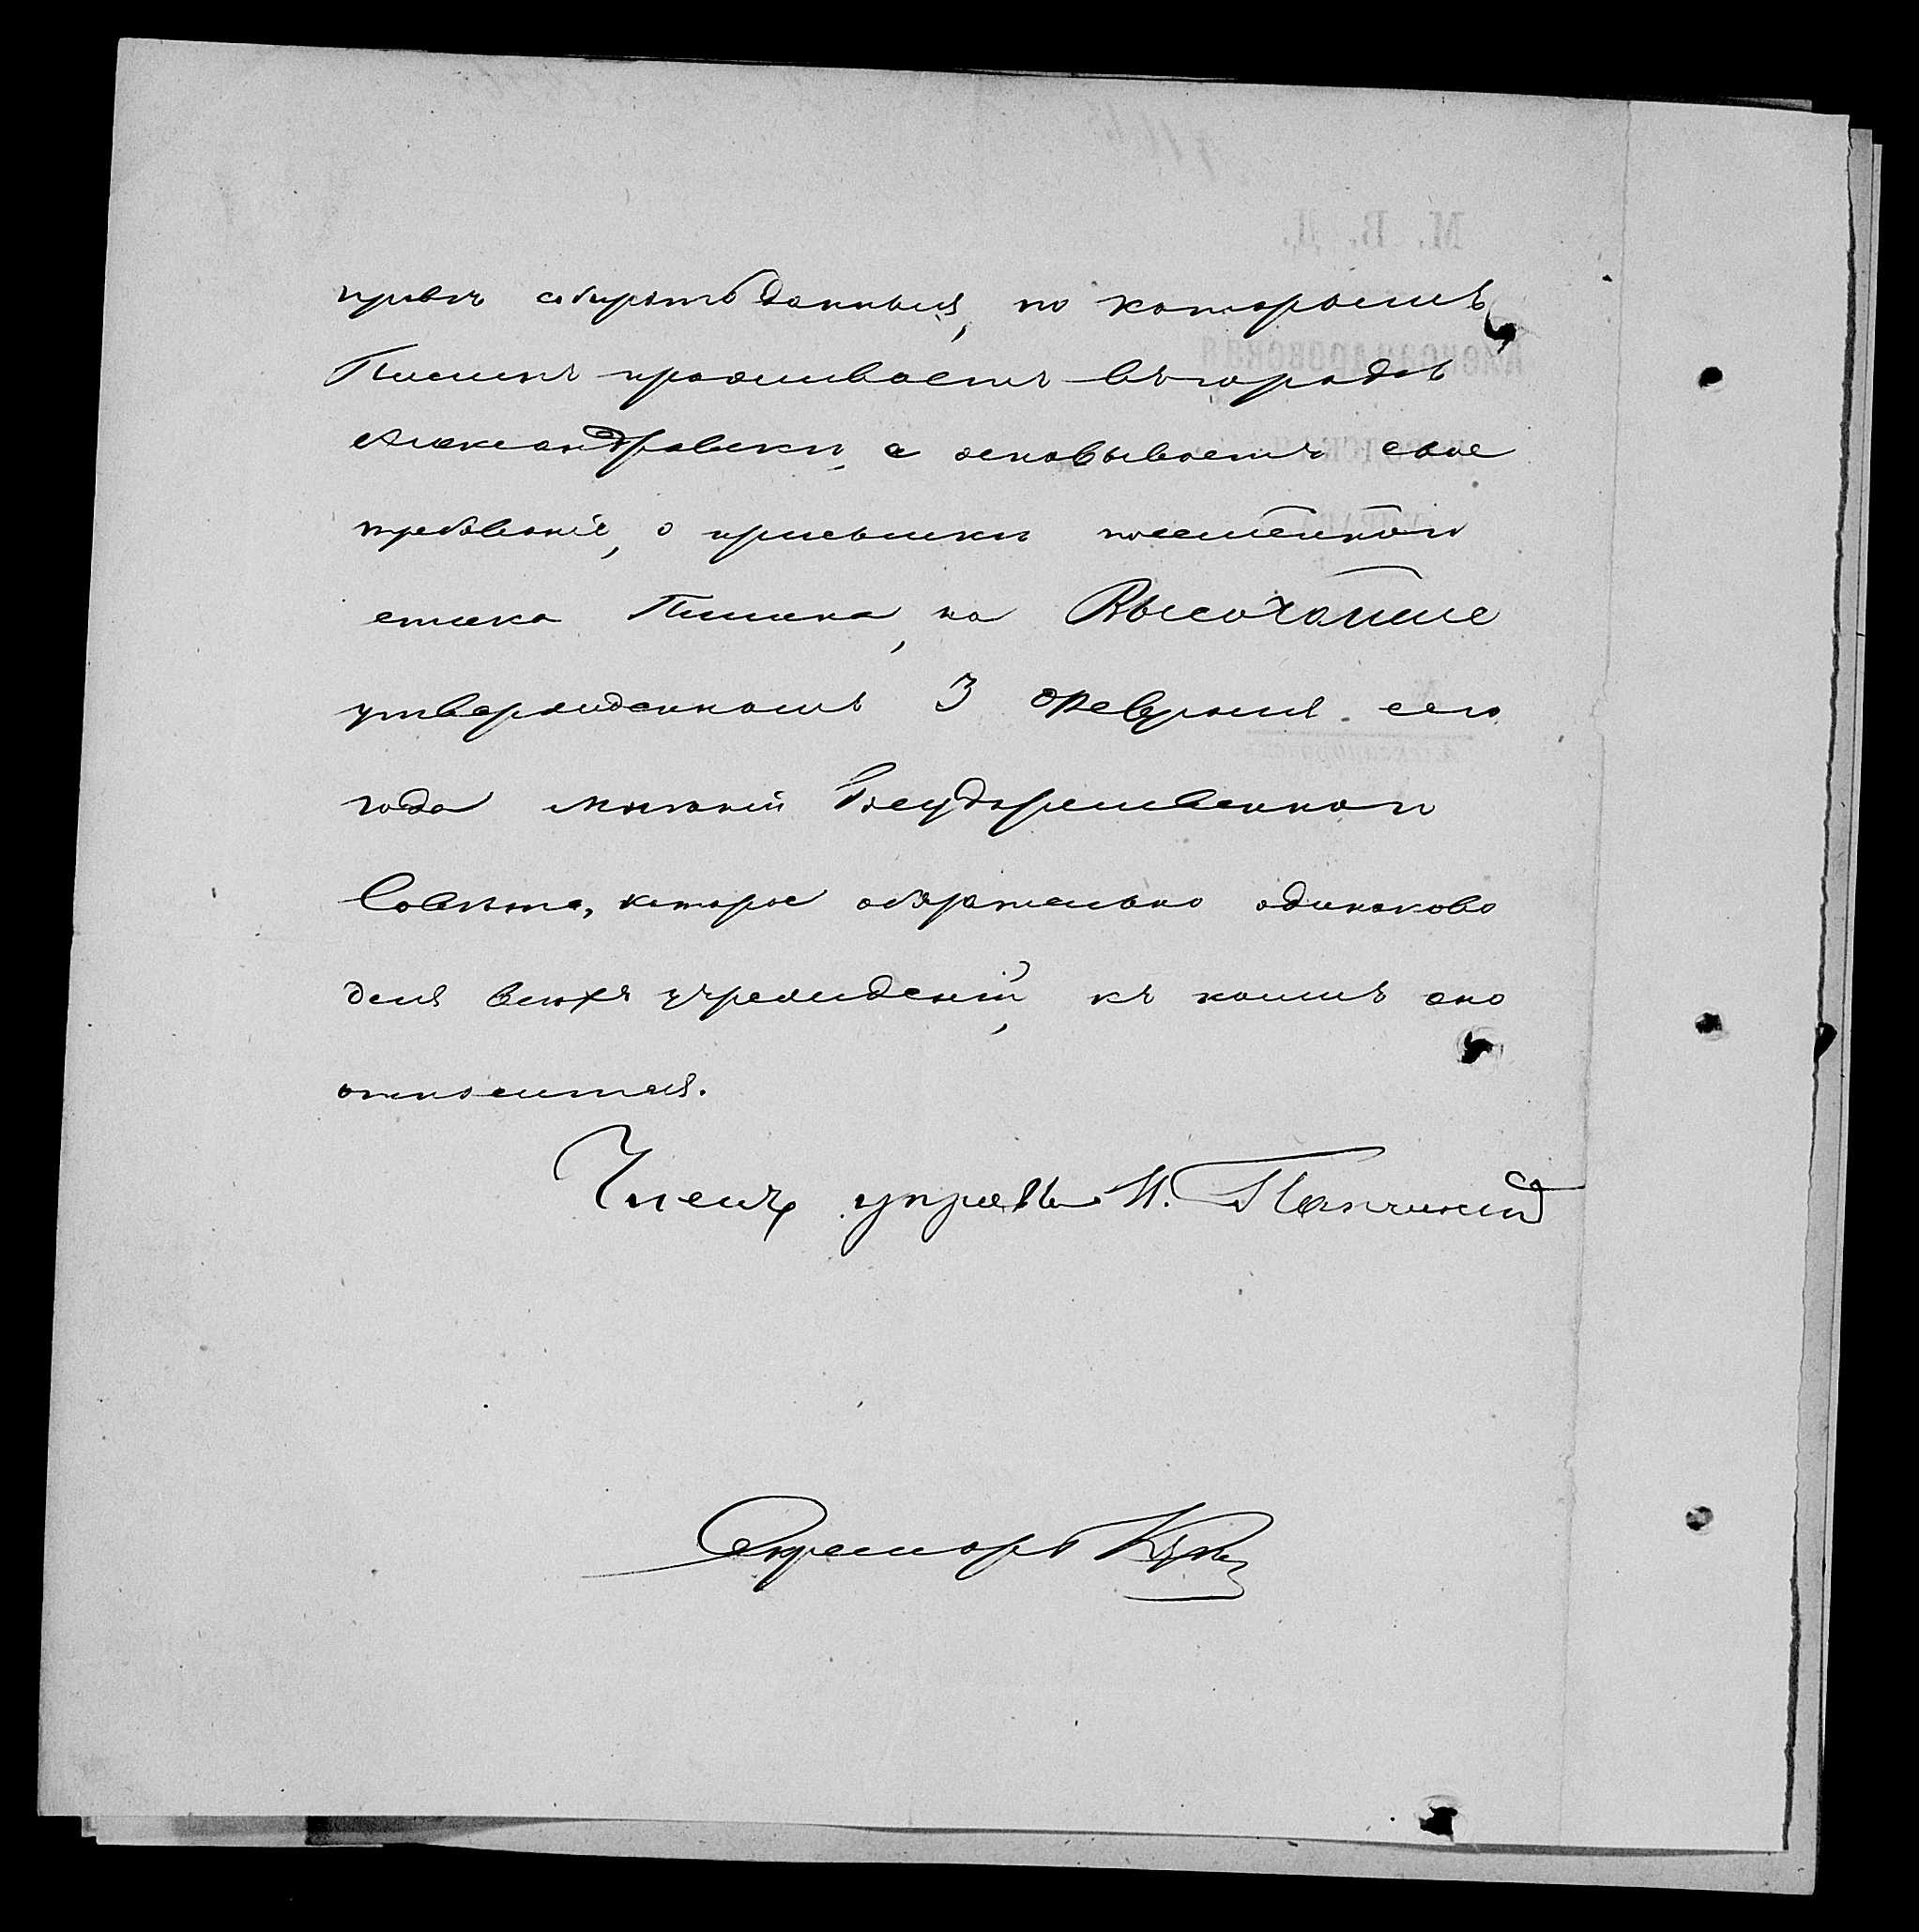 правъ собирать данныя, по которымъ
Пишикъ проживаетъ въ городѣ
Александровскѣ, а основываетъ свое
требованіе, о присылкѣ посемейнаго
списка Пишика, на Высочайше
утвержденномъ 3 Февраля сего
года мнѣніи Государственнаго
Совѣта, которое обязательно одинаково
для всѣхъ учрежденій, къ коимъ оно
относится.
Членъ управы И.
Секретарь
М. В. Д.
Александровская